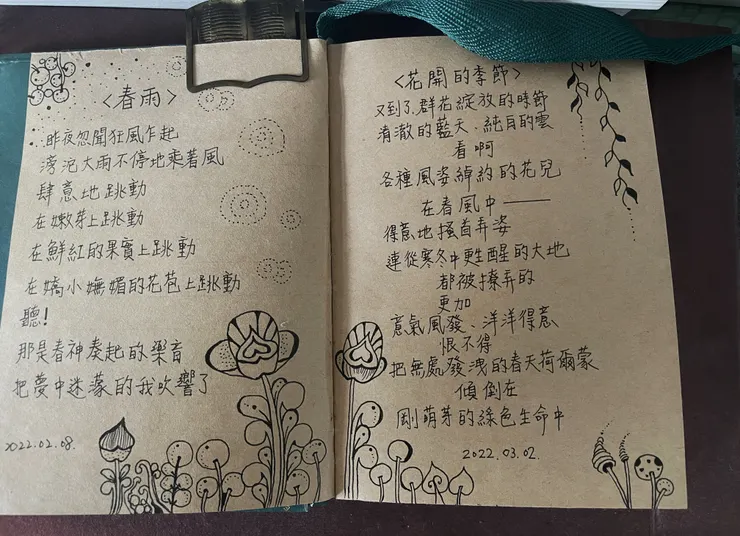 〈春雨〉
昨夜忽聞狂風乍起
滂沱大雨不停地乘著風
肆意地跳動
在嫩芽上跳動
在鮮紅的果實上跳動
在嬌小嫵媚的花苞上跳動
聽!
那是春神奏起的樂音
把夢中迷蒙的我吹響了
2022.02.08.
〈花開的季節〉
又到了群花綻放的時節
清澈的藍天、純白的雲
看啊
各種風姿綽約的花兒
在春風中——
得意地搔首弄姿
連從寒冬中甦醒的大地
都被撩弄的
更加
意氣風發、洋洋得意
恨不得
把無處發洩的春天荷爾蒙
傾倒在
剛萌芽的綠色生命中
2022.03.02.